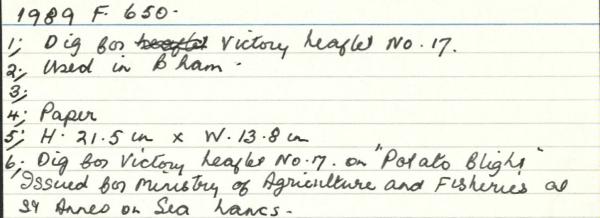 1989 F. 650.
1; Dig for leaflet Victory leaflet No. 17.
2; Used in B'ham.
3;
4; Paper
5; H. 21.5 cm x W. 13.8 cm
6. Dig for Victory leaflet No. 17. on "Potato Blight"
Issued for Ministry of Agriculture and Fisheries at
St Annes on Sea Lancs.